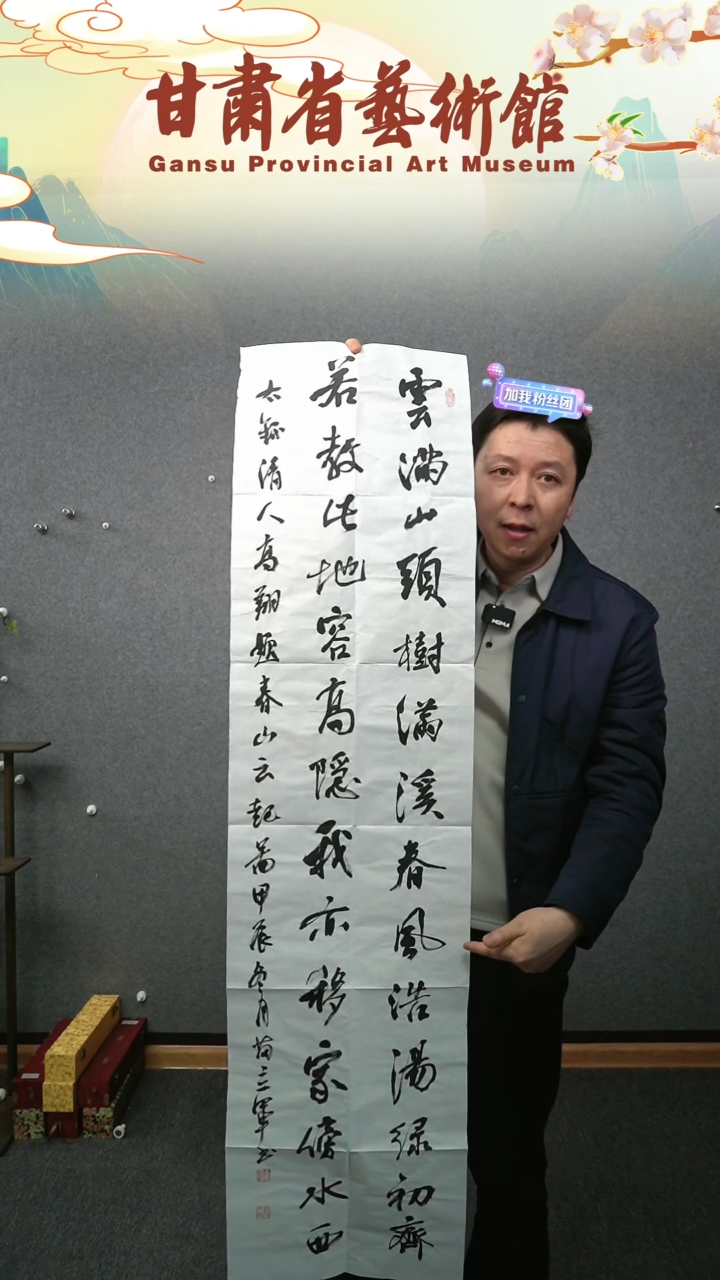 甘肅省藝術館
Gansu Provincial Art Museum
加我粉丝团
雲滿山頭樹滿溪春風浩湯绿初齊
若教此地容高隱我亦移家傍水西
右録清人高翔题春山云起啚甲辰冬月三軍书